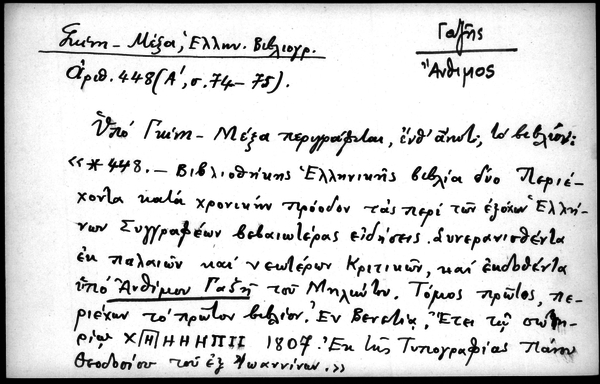 Γκίνη - Μέξα, Ἑλλην. Βιβλιογρ.
Γαζῆς
Ἄνθιμος
ἀριθ. 448 (Α', σ. 74-75).
Ὑπό Γκίνη - Μέξα περιγράφεται, ἔνθ' ἀνωτ., το βιβλίον:
«*448. - Βιβλιοθήκης Ἑλληνικῆς βιβλία δύο Περιέ-
χοντα κατά χρονικήν πρόοδον τάς περί τῶν ἐξόχων Ἑλλή-
νων Συγγραφέων βεβαιωτέρας εἰδήσεις. Συνερανισθέντα
ἐκ παλαιῶν καί νεωτέρων Κριτικῶν, καί ἐκδοθέντα
ὑπό Ἀνθίμου Γαζῆ τοῦ Μηλιώτου. Τόμος πρῶτος, πε-
ριέχων τό πρῶτον βιβλίον. Ἐν Βενετίᾳ, Ἔτει τῷ σωτη-
ρίῳ Χ|Η|ΗΗΗΠΙΙ 1807. Ἐκ τῆς Τυπογραφίας Πάνου
Θεοδοσίου τοῦ ἐξ Ἰωαννίνων.»